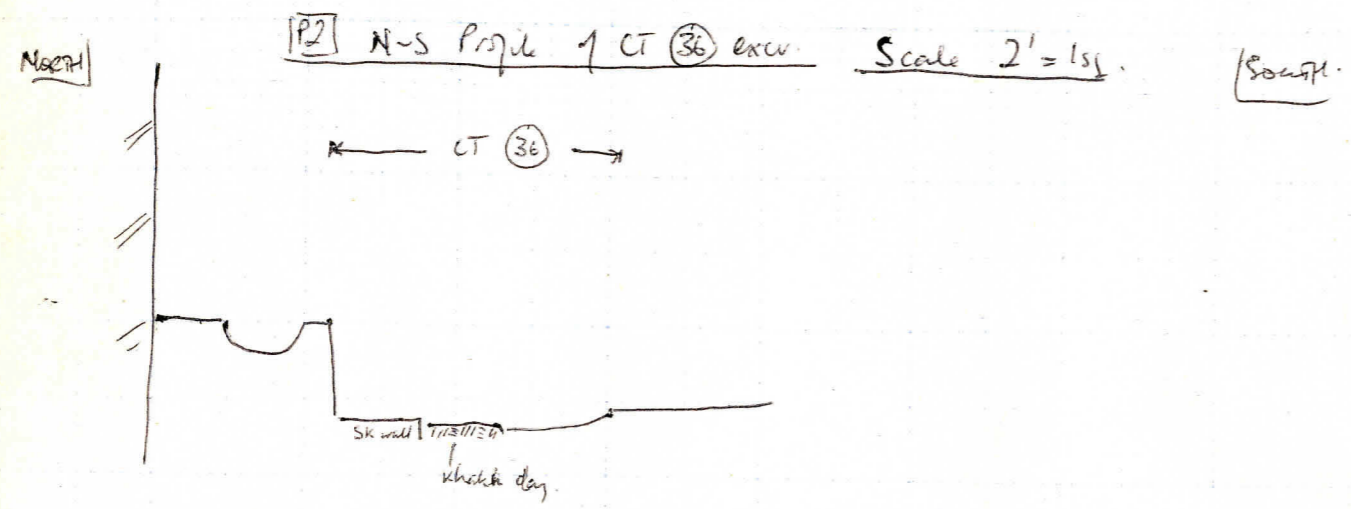 P2 N-S Profile of CT 36 excv. Scale 2' = 1sq.
NORTH
SOUTH.
CT 36
SK wall
Khaki clay.